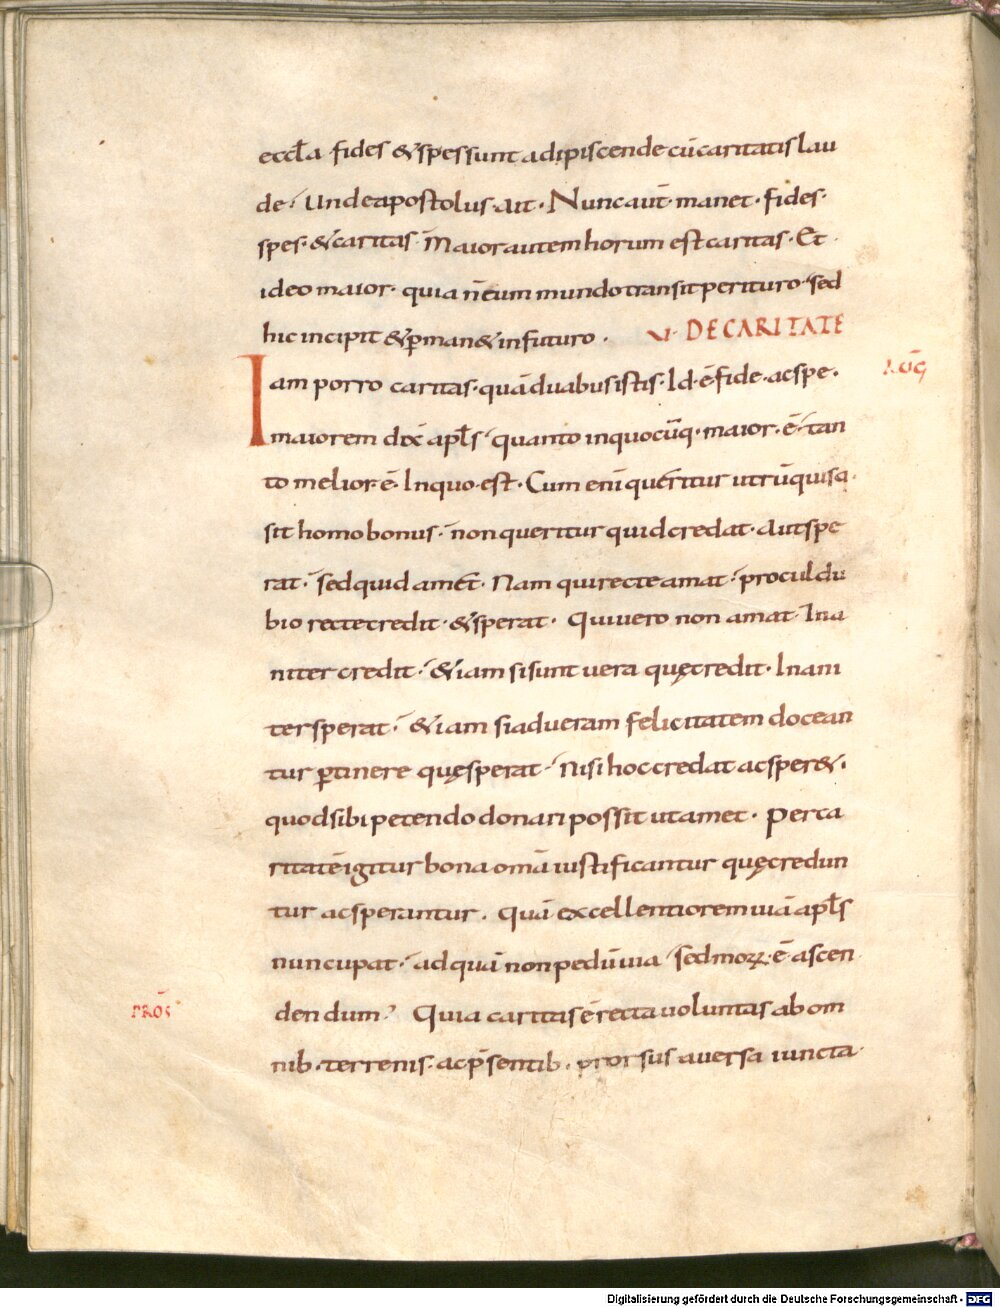 eccl̄a fides & spes sunt adipiscende cū caritatis lau
de· Unde apostolus ait· Nunc aut̄ manet· fides·
spes· & caritas· Maior autem horum est caritas· Et
ideo maior· quia n̄ cum mundo transit perituro· sed
hic incipit & ꝑman& in futuro· V· DE CARITATE
Iam porro caritas· quā duabus istis· Id· ē fide· ac spe·
maiorem dix̄ apl̄s· quanto in quocūq· maior· ē· tan
to melior· ē· In quo· est· Cum enī queritur utrū quis
sit homo bonus· non queritur quid credat· Aut spe
rat· sed quid amet· Nam qui recte amat· procul du
bio recte credit· & sperat· Qui vero non amat· Ina
niter credit· & iam si sunt vera quę credit· Inani
ter sperat· & iam si ad veram felicitatem docean
tur ꝑtinere quę sperat· Nisi hoc credat ac sper&·
quod sibi petendo donari possit ut amet· Per ca
ritatē igitur bona omā iustificantur quę credun
tur ac sperantur· quā excellentiorem viā apl̄s
nuncupat· ad quā non pedū via· sed moꝝ· ē ascen
dendum? Quia caritas ē recta voluntas ab om
nib· terrenis· ac p̄sentib· prorsus aversa iuncta
AŪG
PROS̄